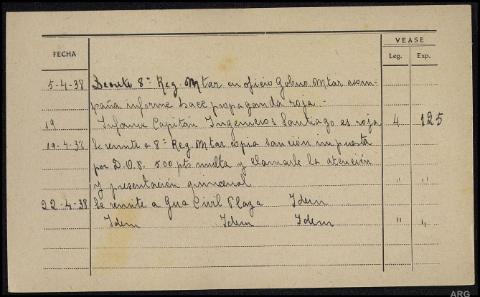 VEASE
FECHA Leg. Exp.
5-4-38 Decreto 8ª Reg. Mtar en oficio Gobno. Mtar acom-
paña informe hace propaganda roja.-
19 Informe Capitán Ingenieros Santiago es roja 4 125
19-4-38 Se remite a 8ª Reg. Mtar copia sanción impuesta
por D.O.P. 500 pts multa y llamarle la atención
y presentación quincenal
22-4-38 Se remite a Gua Civil Plaza Idem
Idem Idem Idem " "
ARG